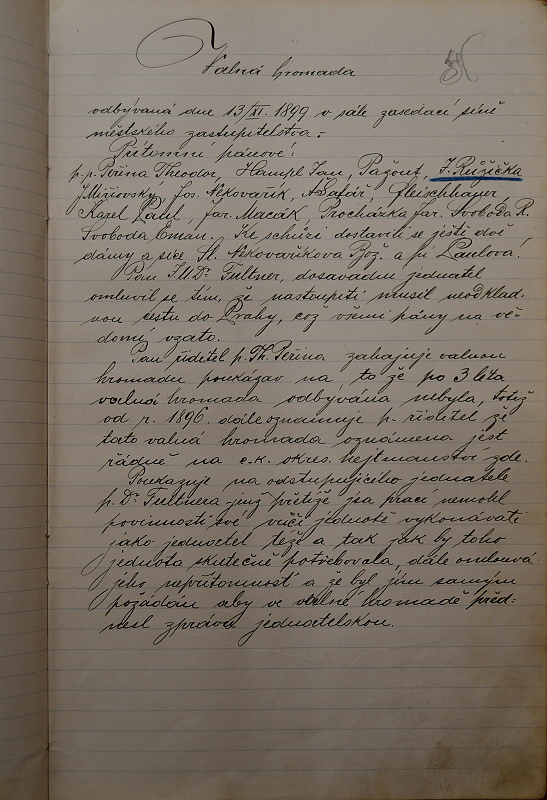 Valná hromada
odbývaná dne 13/XI. 1899 v sále zasedací síně
městského zastupitelstva:-
Přítomni pánové:
p.p. Peřina Theodor, Hampl Jan, Pažout, J. Růžička
J. Miřiovský, Jos. Nekovařík, A. Šafář, Fleischhauer,
Karel Paul, Jar. Macák, Procházka Jar. Svoboda R.
Svoboda Eman. Ke schůzi dostavili se ještě dvě
dámy a sice Sl. Nekovaříkova Bož. a pí Paulová.
Pan J.U.Dr. Fultner, dosavadní jednatel
omluvil se tím, že nastoupiti musil neodklad-
nou cestu do Prahy, což všemi pány na vě-
domí vzato.
Pan ředitel p. Th. Peřina zahajuje valnou
hromadu poukázav na to že po 3 léta
valná hromada odbývána nebyla, totiž
od r. 1896. dále oznamuje p. ředitel že
tato valná hromada oznámena jest
řádně na c.k. okres. hejtmanství zde.
Poukazuje na odstupujícího jednatele
p. Dr. Fultnera jenž přetíže jsa prací nemohl
povinnosti své vůči jednotě vykonávati
jako jednatel též a tak jak by toho
jednota skutečně potřebovala, dále omlouvá
jeho nepřítomnost a že byl jím samým
požádán aby ve valné hromadě před-
nesl zprávu jednatelskou.